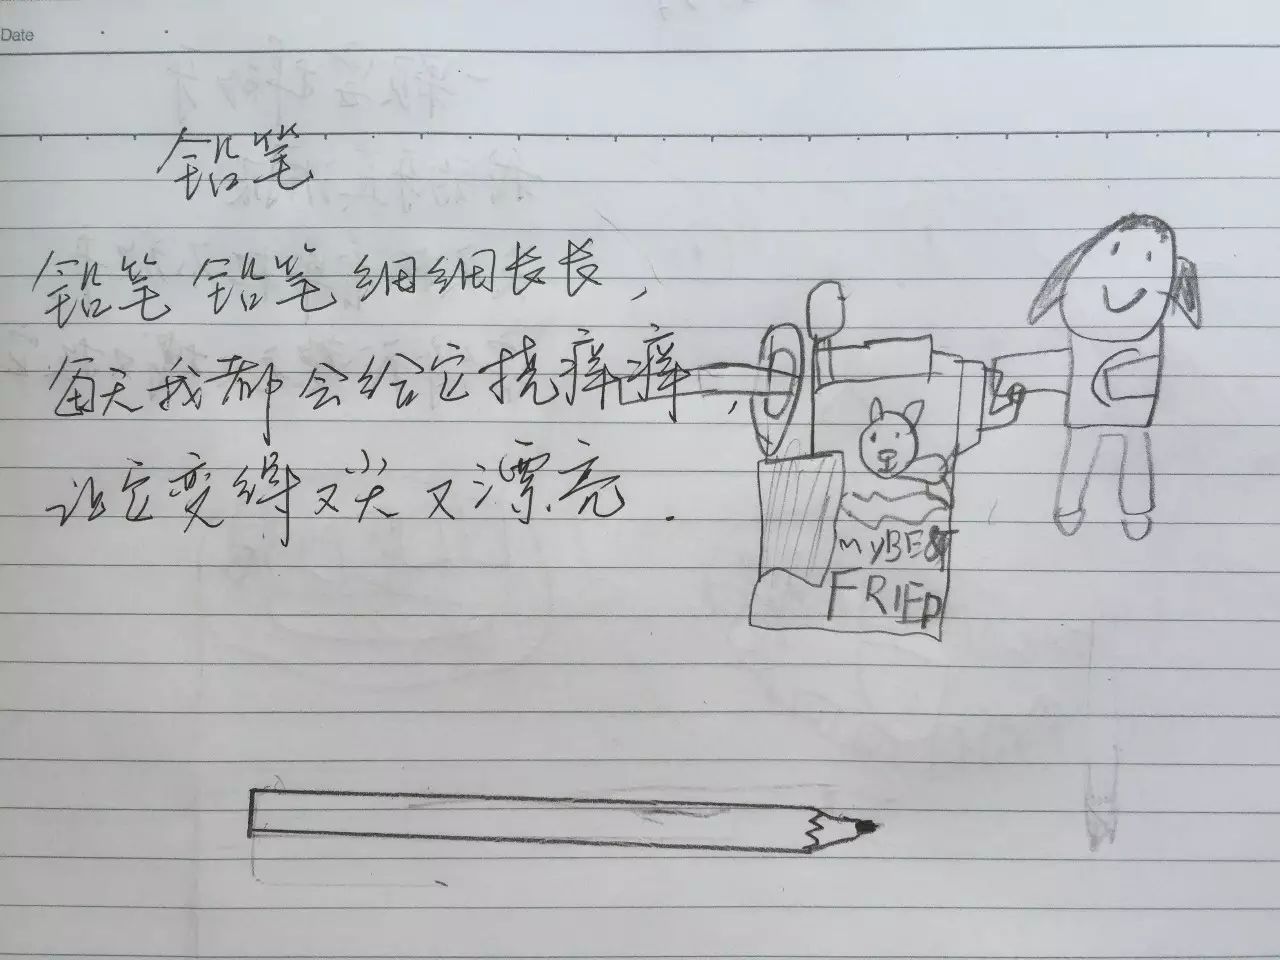 Date
铅笔
铅笔铅笔细细长长，
每天我都会给它挠痒痒，
让它变得又尖又漂亮.
myBEST
FRIED